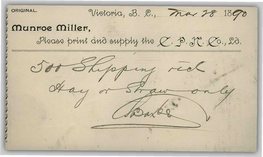 ORIGINAL.
Victoria, B. C., Mar 28 1890
Munroe Miller,
Please print and supply the C. P. N. Co., Ld.
500 Shipping rcd
Hay or Straw only